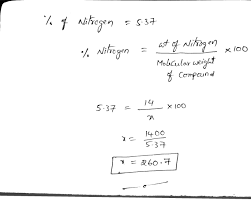 % of Nitrogen = 5.37
% Nitrogen = wt of Nitrogen / Molecular weight of Compound × 100
5.37 = 14 / x × 100
x = 1400 / 5.37
x = 260.7